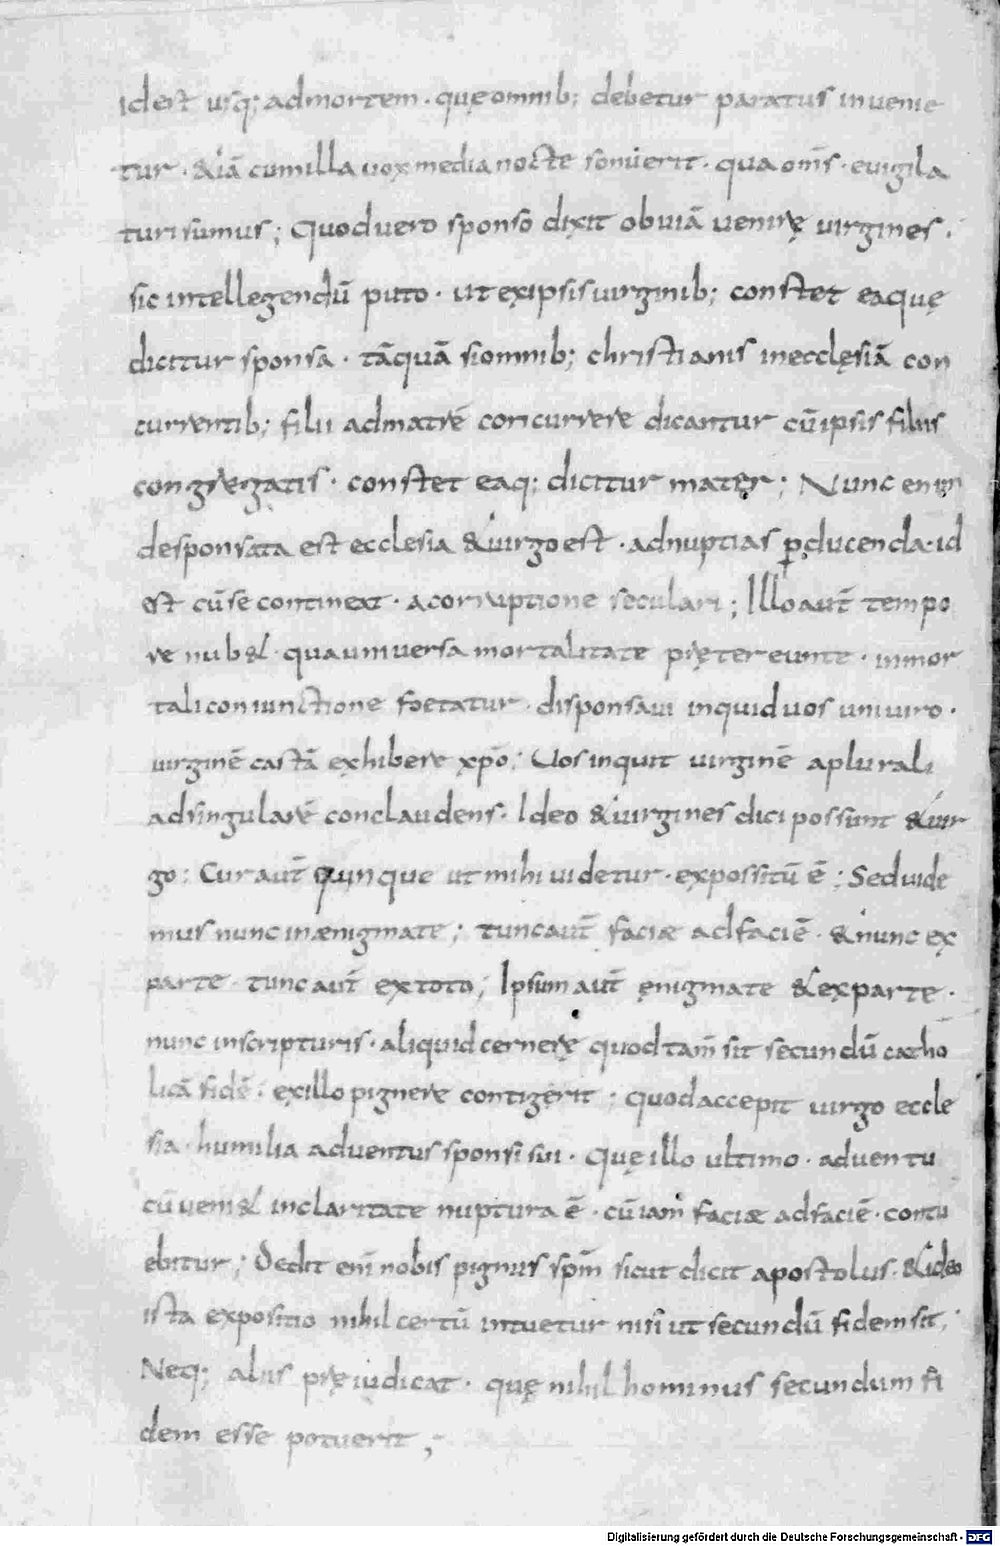 idest usq; admortem · quęomnib; debetur paratus inuenie
tur · &iā cumilla uox media nocte sonuerit · qua om̄s · euigila
turi sumus; Quoduero sponso dixit obuiā uenirę uirgines ·
sic intellegendū puto · ut exipsis uirginib; constet eaquę
dicitur sponsa · tāquā siomnib; christianis inecclęsiā con
currentib; filii admatrē concurrere dicantur cūipsis filiis
congregatis · constet eaq; dicitur mater; Nunc enim
desponsata est ecclesia &uirgo est · adnuptias ꝑducenda · id
est cū se contineat · acorruptione seculari; Illo aut̄ tempo
re nub& · qua uniuersa mortalitate pręter eunte · inmor
tali coniunctione foetatur · disponsaui inquid uos uniuiro ·
uirginē castā exhibere xp̄o; Uos inquit uirginē aplurali
adsingularē conclaudens · Ideo &uirgines dici possunt &uir
go; Cur aut̄ quinque ut mihi uidetur · expossitū ē; Sed uide
mus nunc inænigmate; tunc aut̄ faciæ adfaciē · &nunc ex
parte · tunc aut̄ extoto; Ipsum aut̄ ęnigmate &exparte ·
nunc inscripturis · aliquid cernerę quod tam̄ sit secundū catho
licā fidē · exillo pignere contigerit; quod accepit uirgo eccle
sia · humilia aduentus sponsi sui · Quę illo ultimo · aduentu
cū ueni& inclaritate nuptura ē · cū iam faciæ adfaciē · contu
ebitur; Dedit eni nobis pignus sp̄m sicut dicit apostolus · &ideo
ista expositio nihil certū intuetur nisi ut secundū fidem sit;
Neq; aliis pręiudicat · quę nihil hominus secundum fi
dem esse potuerit;
Digitalisierung gefördert durch die Deutsche Forschungsgemeinschaft - DFG